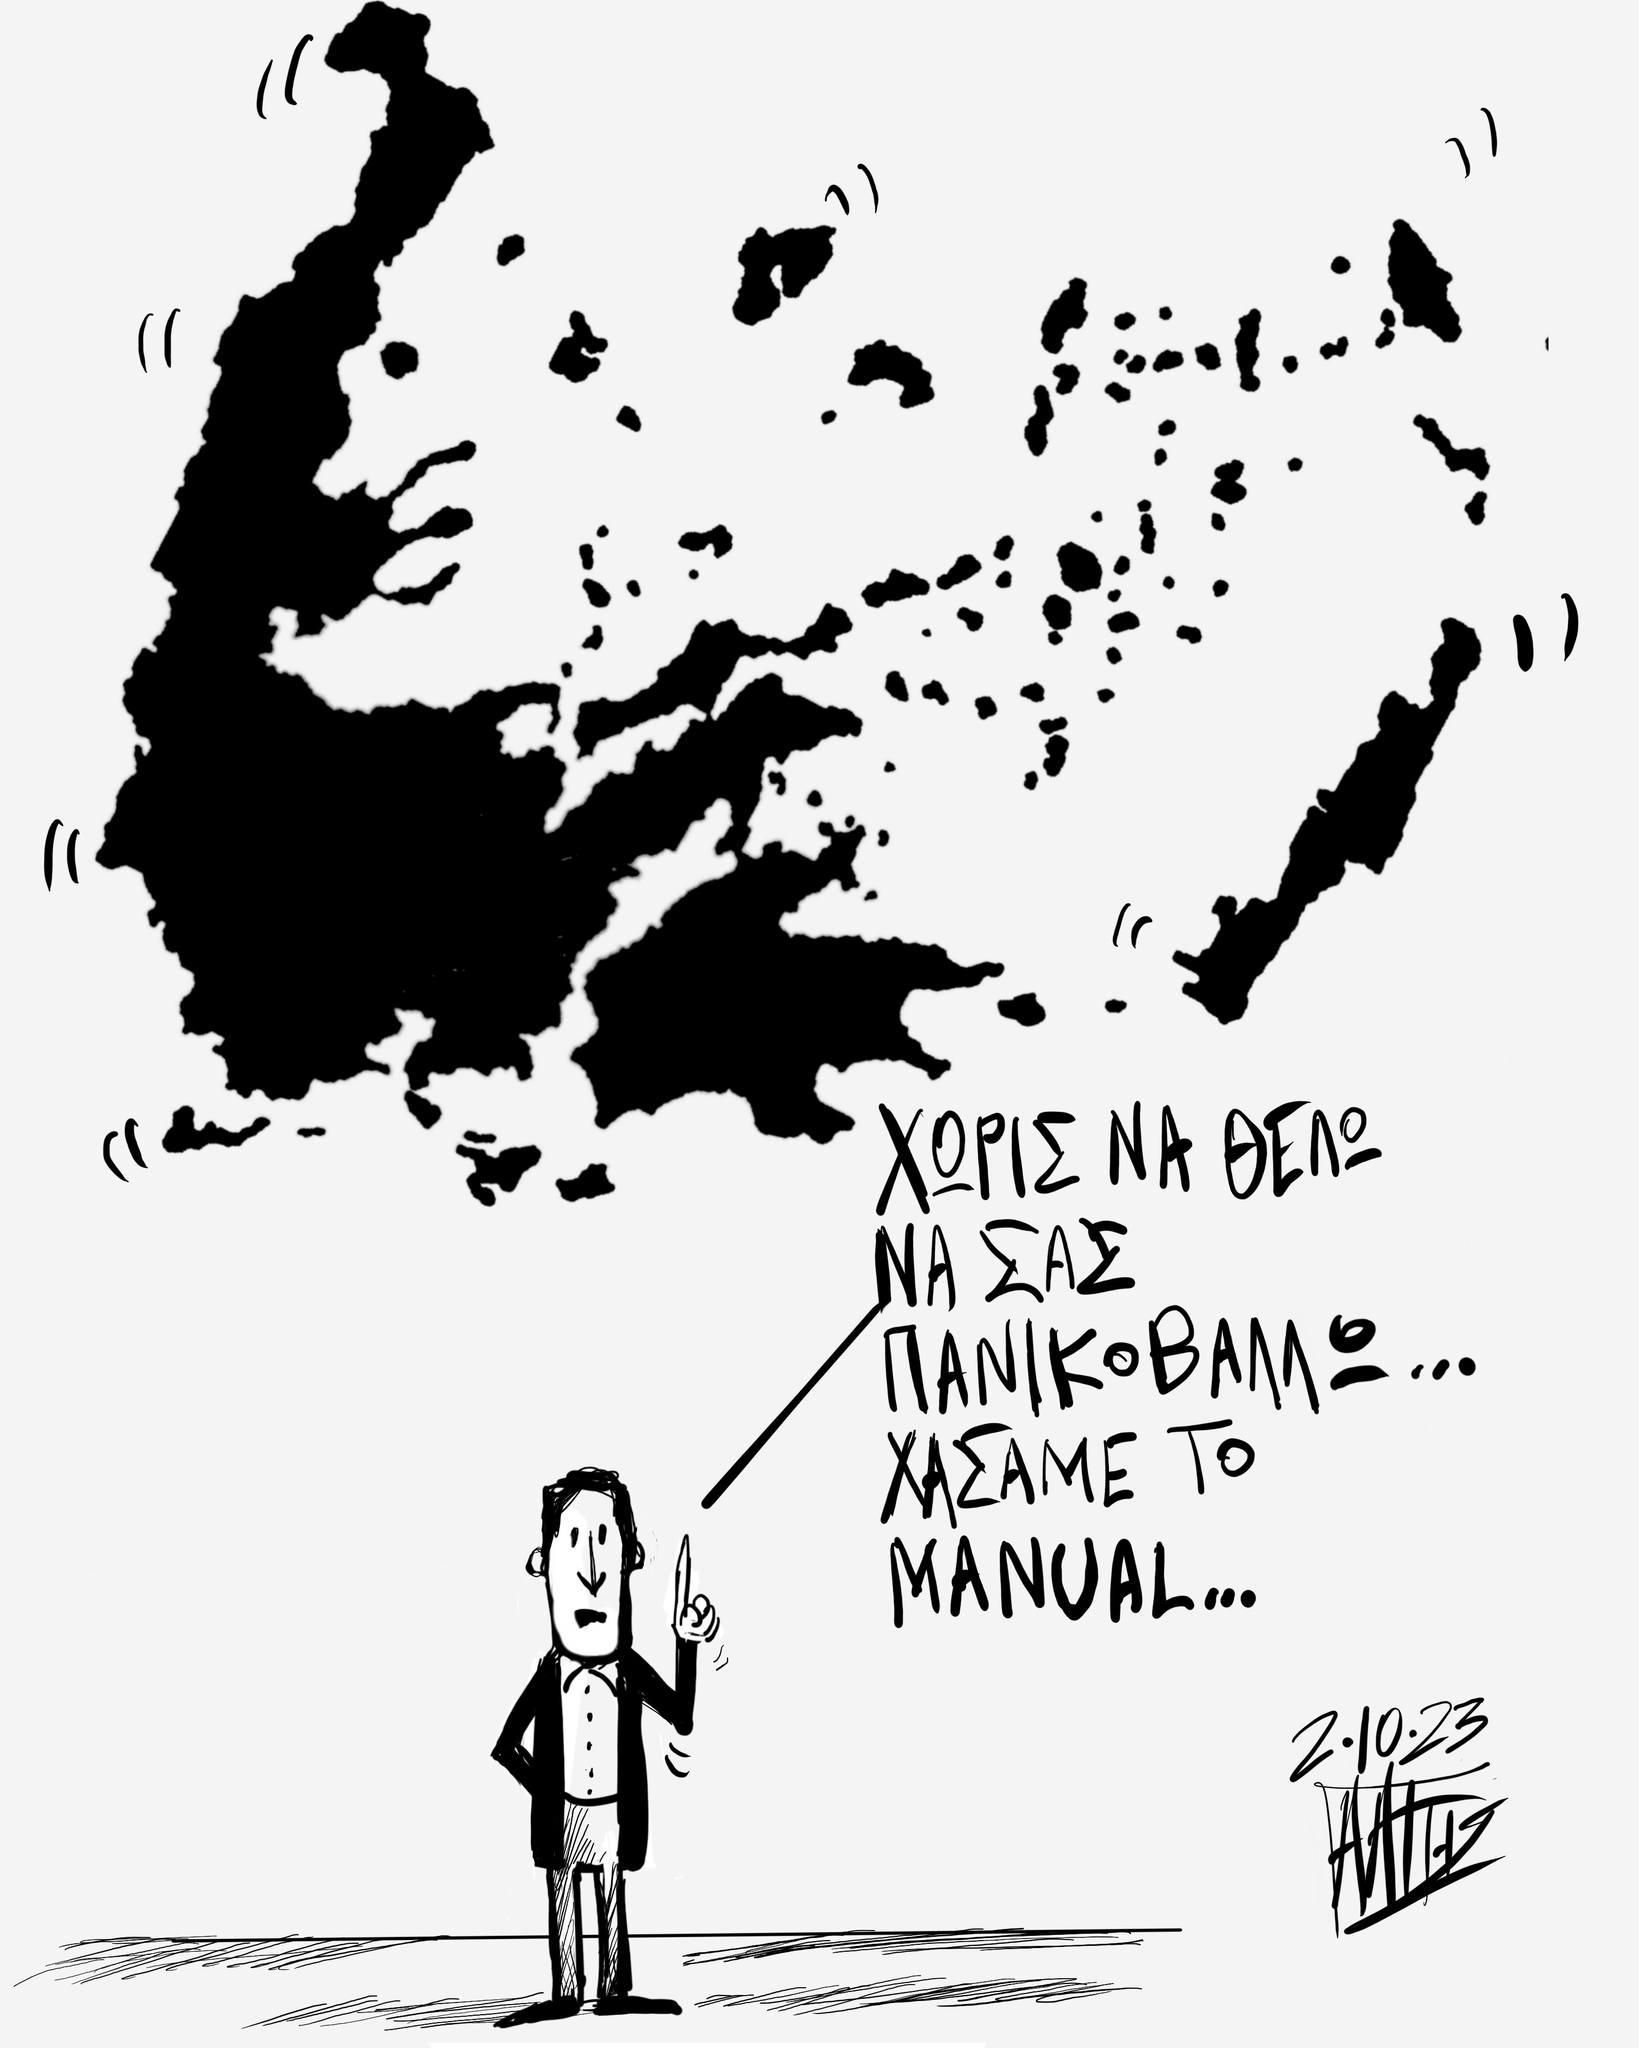 ΧΩΡΙΣ ΝΑ ΘΕΛΩ
ΝΑ ΣΑΣ
ΠΑΝΙΚΟΒΑΛΛΩ...
ΧΑΣΑΜΕ ΤΟ
MANUAL...
2.10.23